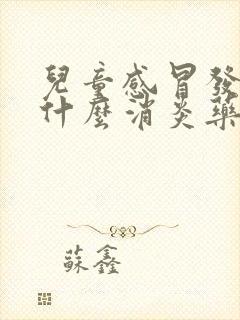 兒童感冒發
什麼消炎藥
蘇鑫